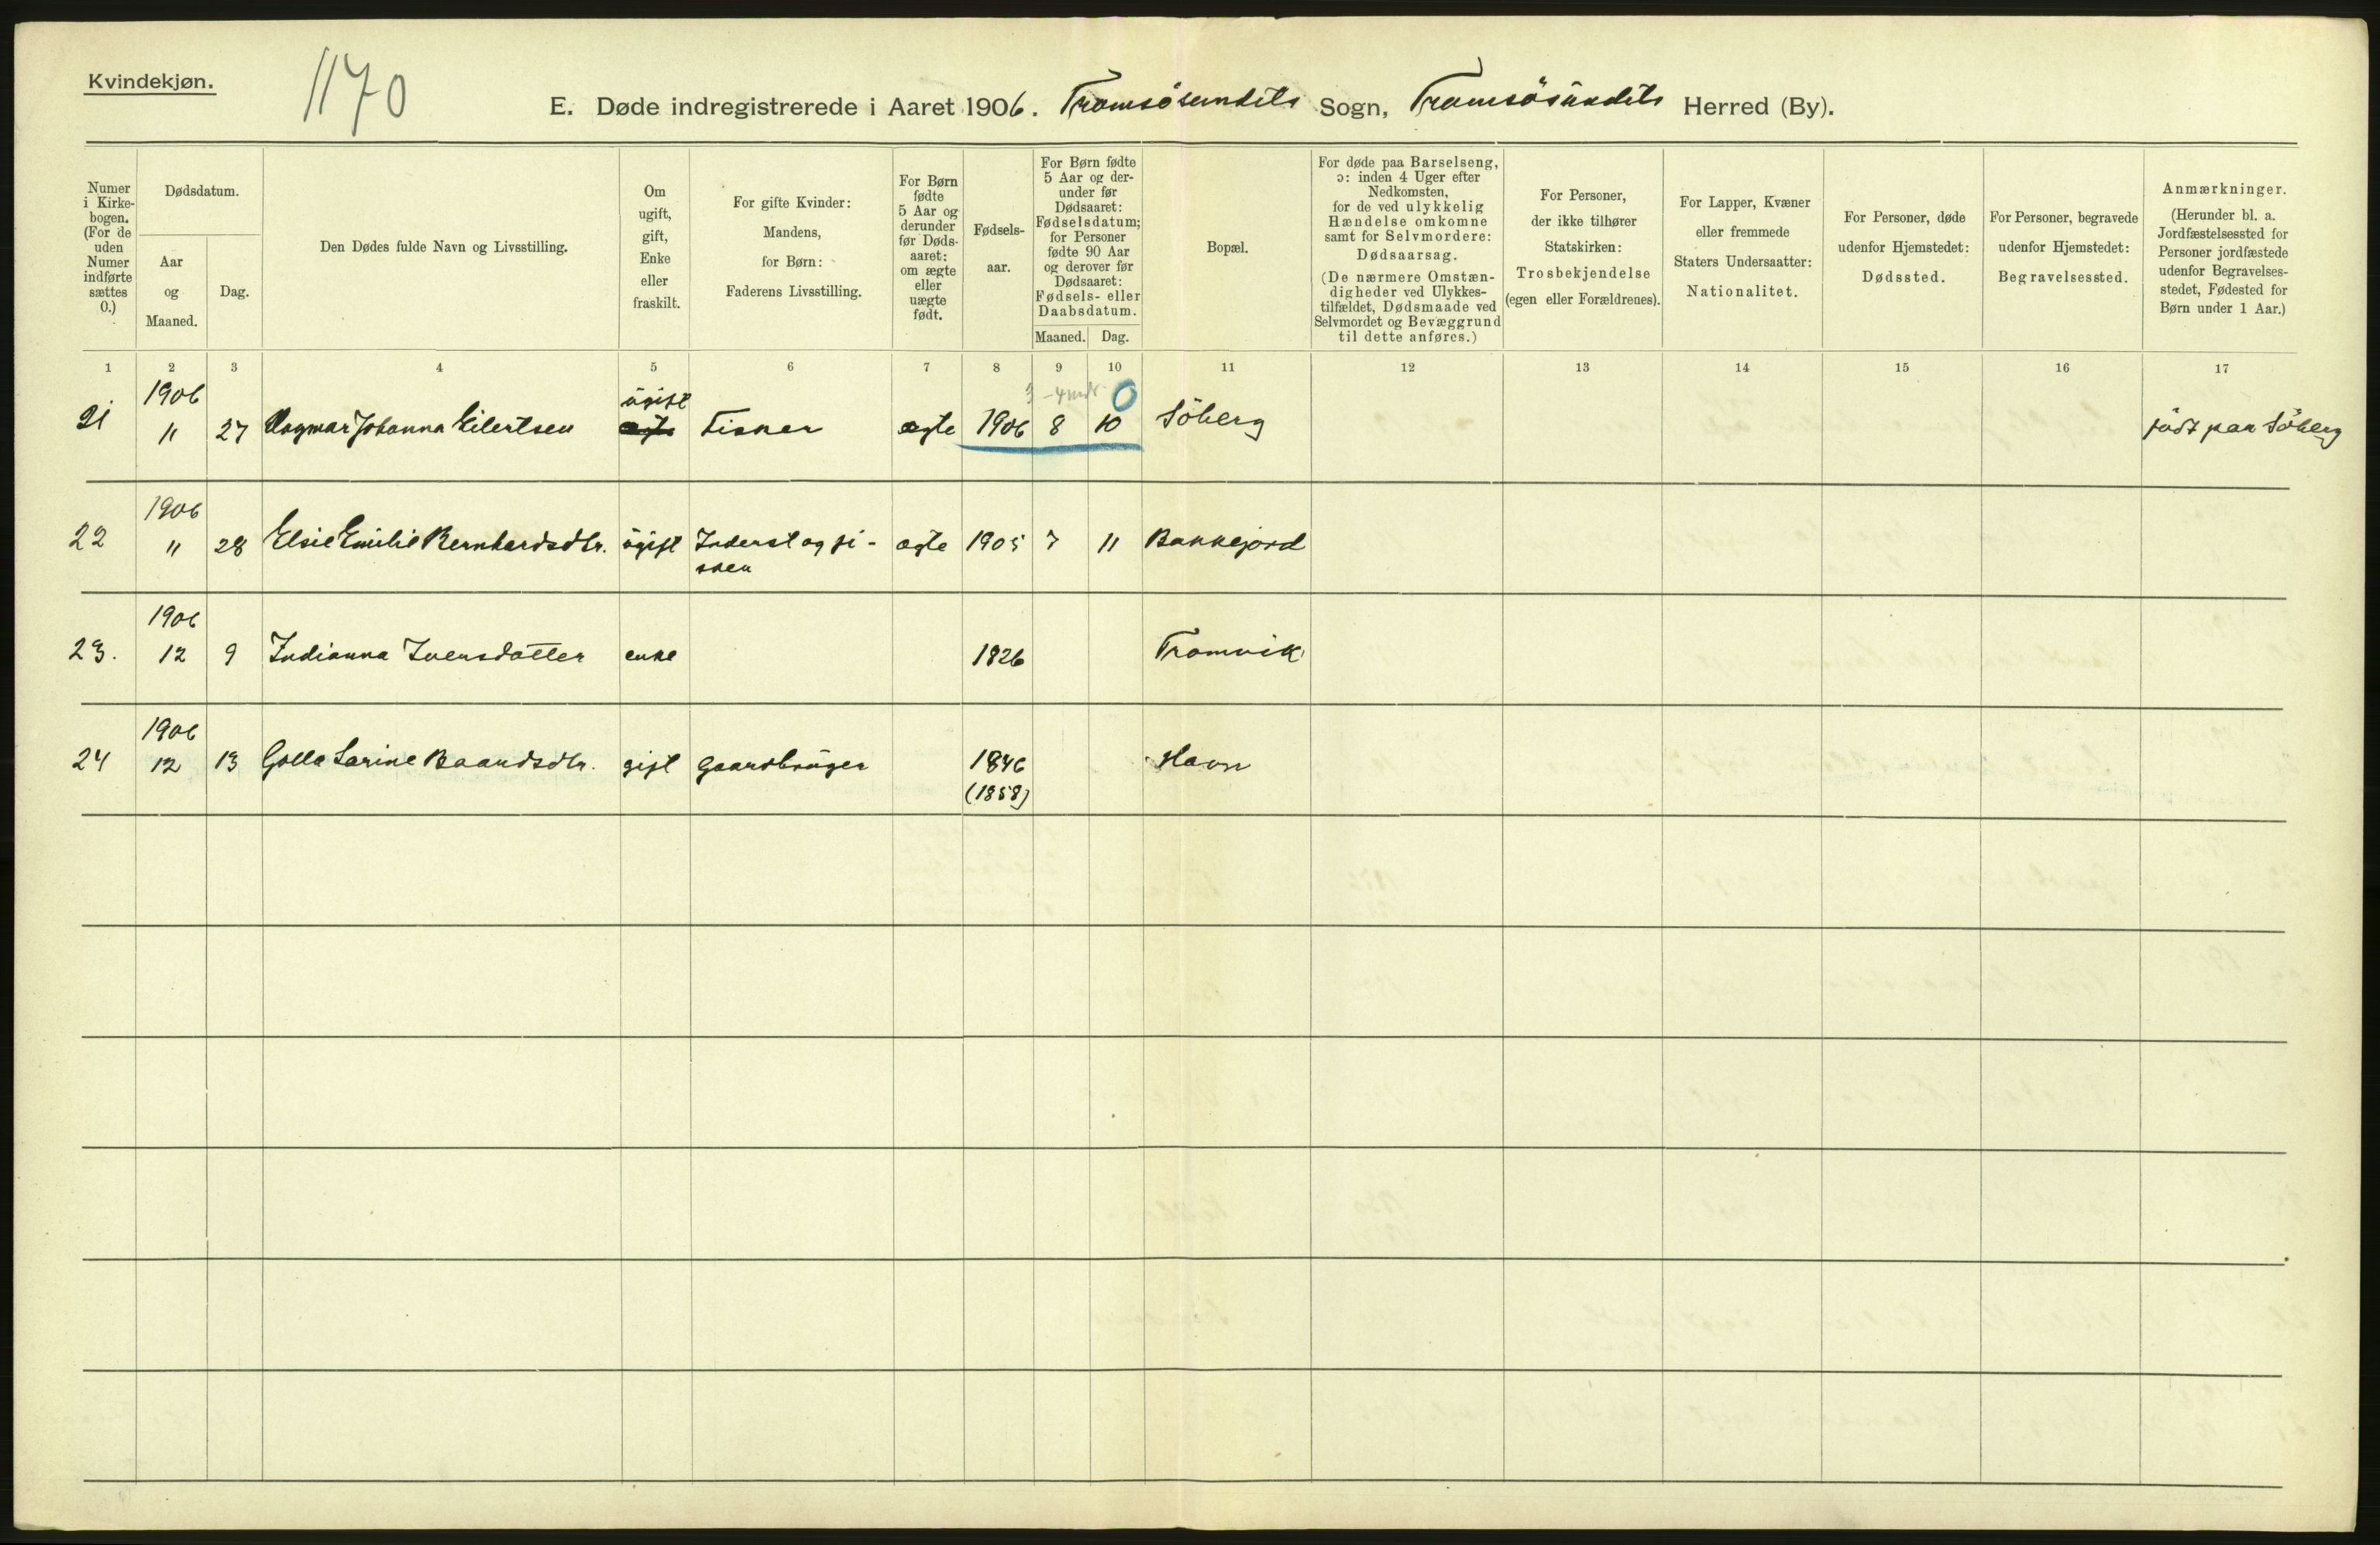 Kvindekjøn.
1170
E. Døde indregistrerede i Aaret 1906. Tromsösundets Sogn, Tromsösundets Herred (By).
Numer i Kirke-bogen. (For de uden Numer indførte sættes 0.)
Dødsdatum.
Aar og Maaned.
Dag.
Den Dødes fulde Navn og Livsstilling.
Om ugift, gift, Enke eller fraskilt.
For gifte Kvinder: Mandens, for Børn: Faderens Livsstilling.
For Børn fødte 5 Aar og derunder før Døds-aaret: om ægte eller uægte født.
Fødsels-aar.
For Børn fødte 5 Aar og der-under før Dødsaaret: Fødselsdatum; for Personer fødte 90 Aar og derover før Dødsaaret: Fødsels- eller Daabsdatum.
Maaned. Dag.
Bopæl.
For døde paa Barselseng, ɔ: inden 4 Uger efter Nedkomsten, for de ved ulykkelig Hændelse omkomne samt for Selvmordere: Dødsaarsag. (De nærmere Omstæn-digheder ved Ulykkes-tilfældet, Dødsmaade ved Selvmordet og Bevæggrund til dette anføres.)
For Personer, der ikke tilhører Statskirken: Trosbekjendelse (egen eller Forældrenes).
For Lapper, Kvæner eller fremmede Staters Undersaatter: Nationalitet.
For Personer, døde udenfor Hjemstedet: Dødssted.
For Personer, begravede udenfor Hjemstedet: Begravelsessted.
Anmærkninger. (Herunder bl. a. Jordfæstelsessted for Personer jordfæstede udenfor Begravelses-stedet, Fødested for Børn under 1 Aar.)
1 2 3 4 5 6 7 8 9 10 11 12 13 14 15 16 17
1906 ugift 3-4 mdr 0
21 11 27 Dagmar Johanna Eilertsen Fisker ægte 1906 8 10 Söberg födt paa Söberg
1906
22 11 28 Elsie Emilie Bernhardsdtr. ugift Inderst og fi-
sker
ægte 1905 7 11 Bakkejord
1906
23. 12 9 Indianna Iversdatter enke 1826 Tromvik
1906
24 12 13 Golla Sarine Baardsdtr. gift Gaardbruger 1846 Havn
(1858)